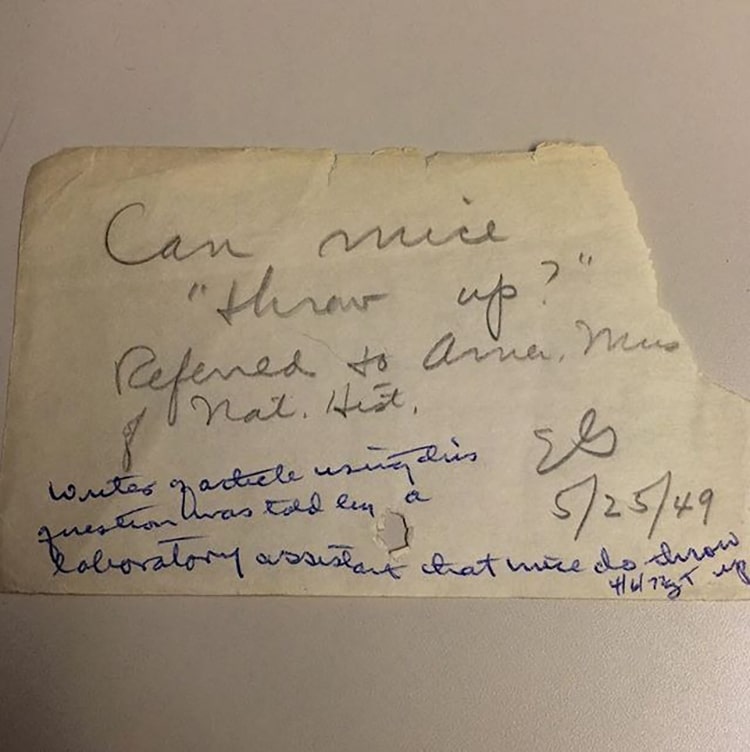 Can mice
"throw up?"
Referred to Amer. Mus
of Nat. Hist.
ELS
5/25/49
Writer of article using this
question was told by a
laboratory assistant that mice do throw
up
4/6/72